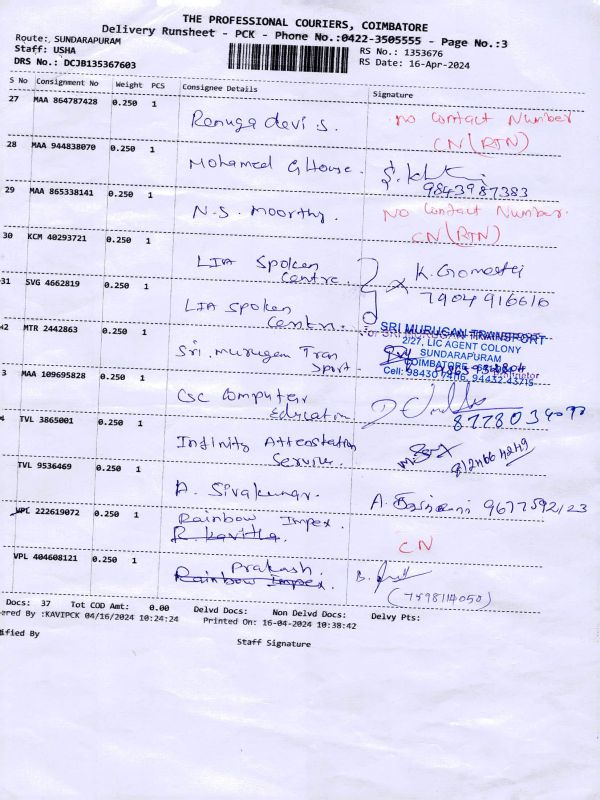 THE PROFESSIONAL COURIERS, COIMBATORE
Delivery Runsheet - PCK - Phone No.:0422-3505555 - Page No.:3
Route:, SUNDARAPURAM
Staff: USHA
RS No.: 1353676
DRS No.: DCJB135367603
RS Date: 16-Apr-2024
S No Consignment No Weight PCS Consignee Details Signature
27 MAA 864787428 0.250 1
Renuga devi s. No Contact Number
CN(RTN)
28 MAA 944838070 0.250 1
Mohamed GHouse.
9843987383
29 MAA 865338141 0.250 1
N.S. Moorthy. No Contact Number.
CN(RTN)
30 KCM 40293721 0.250 1
LIA Spoken
Centre. K. Gomathi
31 SVG 4662819 0.250 1
7904916610
LIA Spoken
Centre.
MTR 2442863 0.250 1
SRI MURUGAN TRANSPORT
2/27, LIC AGENT COLONY
SUNDARAPURAM
COIMBATORE
Cell: 94432 43715
Sri. Murugan Tran
sport.
3 MAA 109695828 0.250 1
CSC Computer
Education
TVL 3865001 0.250 1
Infinity Attestation
Service.
8124664249
TVL 9536469 0.250 1
A. Sivakumar. 9677592123
VPL 222619072 0.250 1
Rainbow Impex.
R. Kavitha. CN
VPL 404608121 0.250 1
Prakash.
Rainbow Impex.
(7598114050)
Docs: 37 Tot COD Amt: 0.00 Delvd Docs: Non Delvd Docs: Delvy Pts:
ered By :KAVIPCK 04/16/2024 10:24:24 Printed On: 16-04-2024 10:38:42
ified By
Staff Signature